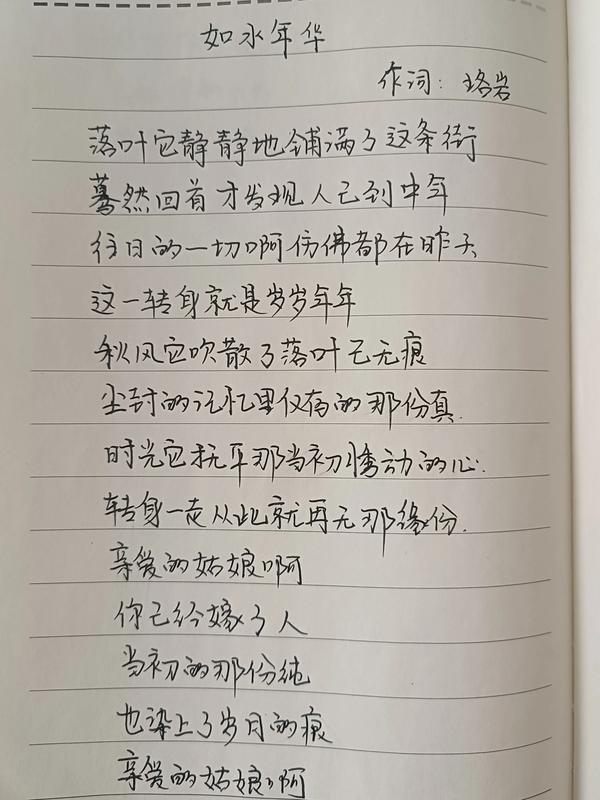 如水年华
作词：珞岩
落叶它静静地铺满了这条街
蓦然回首才发现人已到中年
往日的一切啊仿佛都在昨天
这一转身就是岁岁年年
秋风它吹散了落叶已无痕
尘封的记忆里仅存的那份真.
时光它抚平那当初悸动的心.
转身一走从此就再无那缘份.
亲爱的姑娘啊
你已给嫁了人
当初的那份纯
也染上了岁月的痕
亲爱的姑娘啊